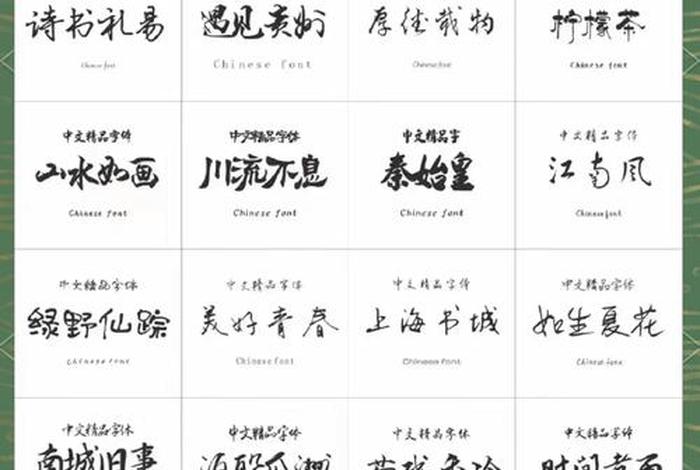 诗书礼易
Chinese font
遇见贵州
Chinese font
厚德载物
Chinese font
柠檬茶
Chinese font
中文精品字体
山水如画
Chinese font
中文精品字体
川流不息
Chinese font
中文精品字
秦始皇
Chinese font
中文精品字体
江南风
Chinese font
中文精品字体
绿野仙踪
Chinese font
中文精品字体
美好青春
Chinese font
中文精品字体
上海书城
Chinese font
中文精品字体
如生夏花
Chinese font
中文精品字体
南城旧事
中文精品字体
中文精品字体
中文精品字体
时间老